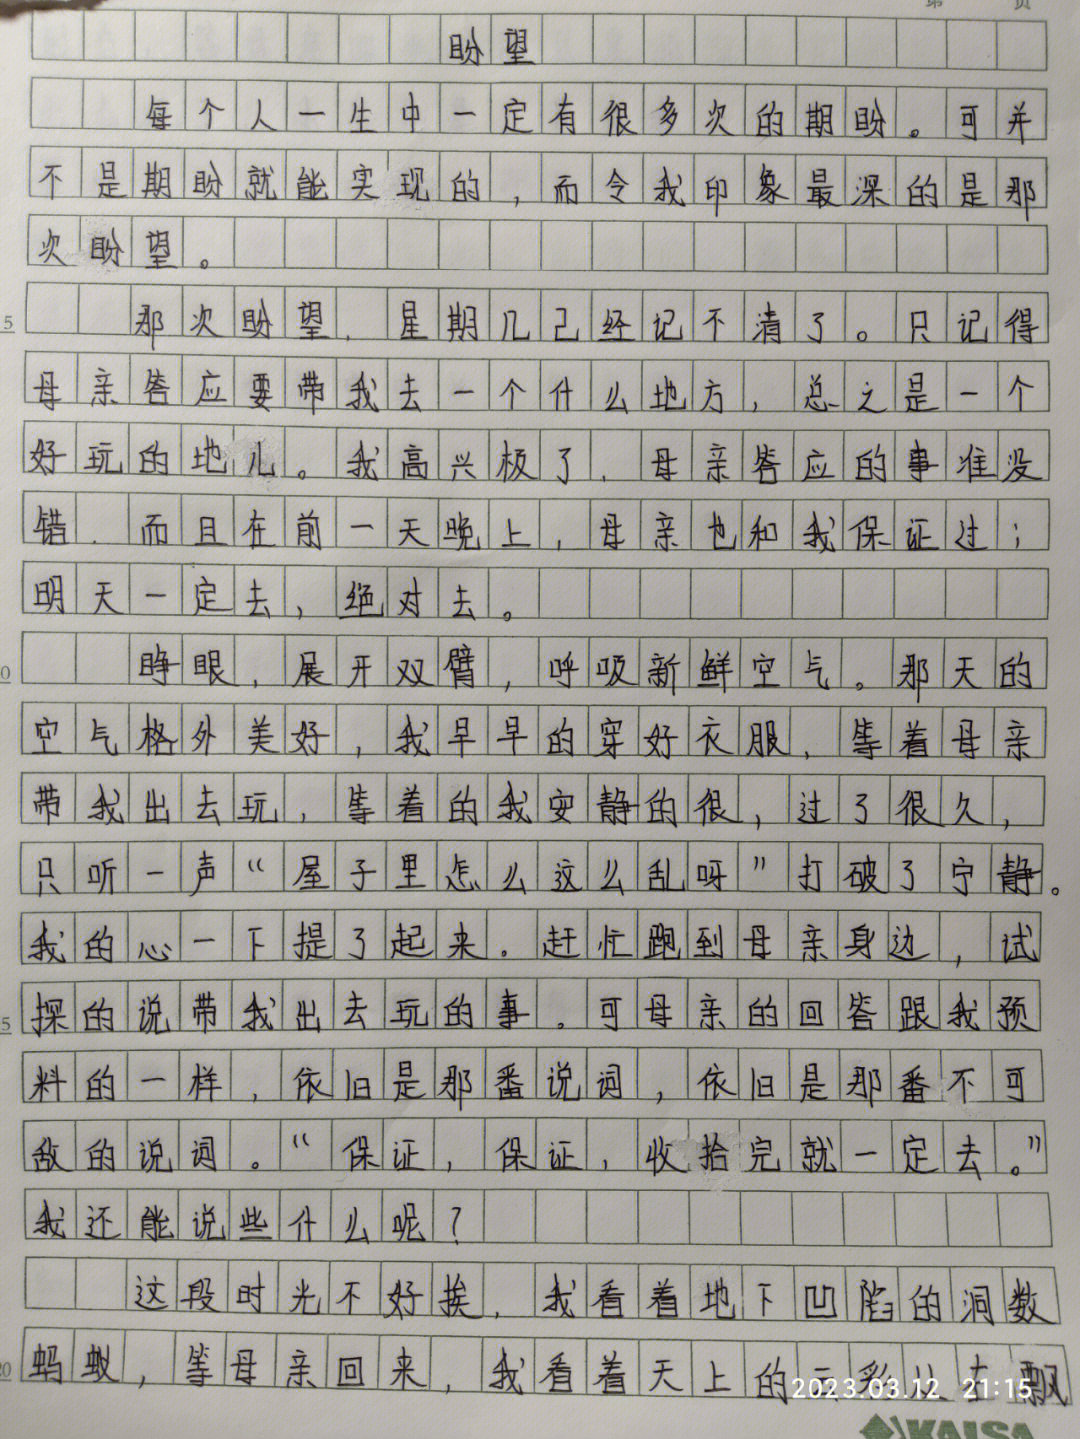 第 页
盼望
每个人一生中一定有很多次的期盼。可并
不是期盼就能实现的，而令我印象最深的是那
次盼望。
5
那次盼望，星期几己经记不清了。只记得
母亲答应要带我去一个什么地方，总之是一个
好玩的地儿。我高兴极了，母亲答应的事准没
错，而且在前一天晚上，母亲也和我保证过；
明天一定去，绝对去。
0
睁眼，展开双臂，呼吸新鲜空气。那天的
空气格外美好，我早早的穿好衣服，等着母亲
带我出去玩，等着的我安静的很，过了很久，
只听一声“屋子里怎么这么乱呀”打破了宁静。
我的心一下提了起来。赶忙跑到母亲身边，试
5
探的说带我出去玩的事。可母亲的回答跟我预
料的一样，依旧是那番说词，依旧是那番不可
敌的说词。“保证，保证，收拾完就一定去。”
我还能说些什么呢？
这段时光不好挨，我看着地下凹陷的洞数
20
蚂蚁，等母亲回来，我看着天上的云彩从在飘
2023.03.12 21:15
KAISA